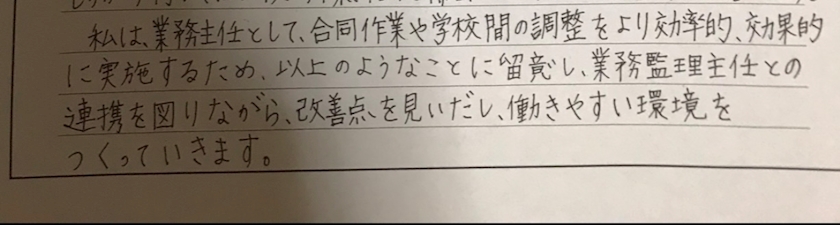 私は、業務主任として、合同作業や学校間の調整をより効率的、効果的
に実施するため、以上のようなことに留意し、業務監理主任との
連携を図りながら、改善点を見いだし、働きやすい環境を
つくっていきます。